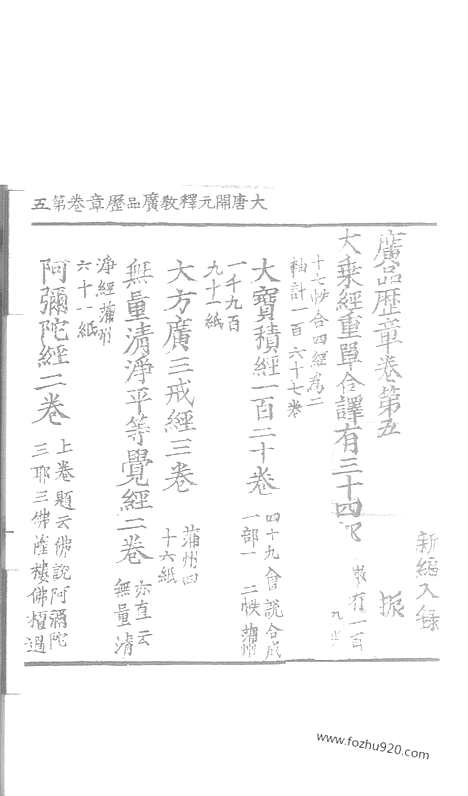 大唐開元釋教廣品歷章卷第五
新編入錄
廣品歷章卷第五 振
大乘經重單合譯有三十四
十七帙合四經為二
軸計一百六十七卷
大寶積經一百二十卷 四十九會說合成
一部一 二帙 蒲州
一千九百
九十一紙
大方廣三戒經三卷 蒲州四
十六紙
無量清淨平等覺經二卷 亦直云
無量清
淨經蒲州
六十一紙
阿彌陀經二卷 上卷題云佛說阿彌陀
三耶三佛薩樓佛檀過
www.fozhu920.com